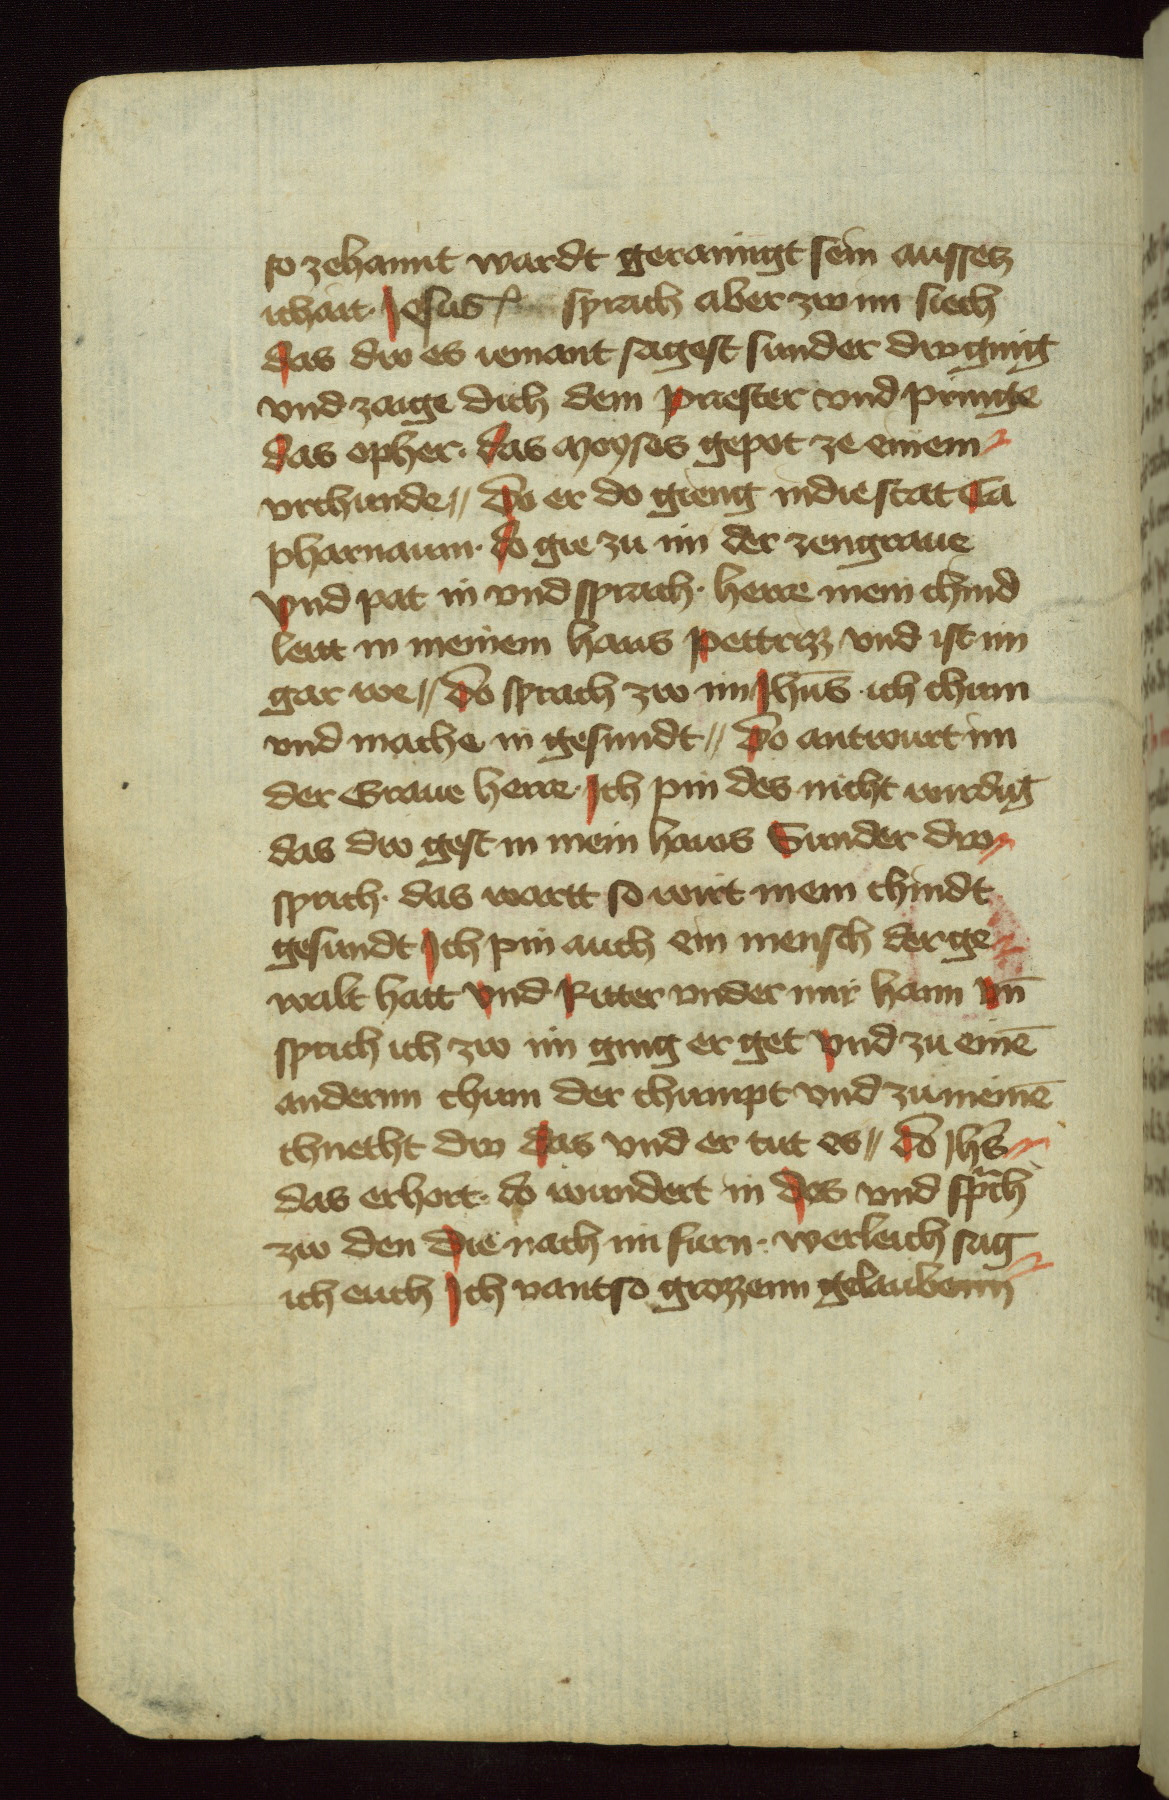 so zehannt wardt geramigt sein aussetz
ichait. Jesus sprach aber zw im siech
das dw es iemant sagest sunder dw ging
vnd zaige dich dem priester vnd pringe
das opher. das moyses gepot ze einem
vrchunde // do er do gieng in die stat Ca
pharnaum. do gie zu im der zengraue
vnd pat in vnd sprach. herre mein chind
leitt in meinem haus pettriz vnd ist im
gar we // do sprach zw im Jhūs ich chum
vnd mache in gesundt // do antwurt im
der Graue herre. Ich pin des nicht wirdig
das dw gest in mein haws Sunder dw
sprich. das wartt so wirt mein chindt
gesundt Ich pin auch ein mensch der ge
walt hatt vnd Ritter vnder mir hann vn̄
sprich ich zw im ging er get vnd zu einē
andernn chum der chumpt vnd zu meinē
chnecht dw das vnd er tut es // do Jhs̄
das erhort. do wundert in des vnd sprch
zw den die nach im furn. werleich sag
ich euch Ich vant so grozzenn gelaubenn